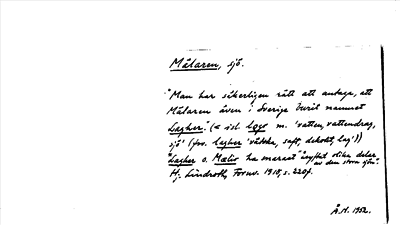 Mälaren, sjö.
"Man har säkerligen rätt att antaga, att
Mälaren även i Sverige burit namnet
Lagher." (= isl. lǫgr m. 'vatten, vattendrag,
sjö' (fsv. lagher 'vätska, saft, dekokt, lag'))
"Lagher o. Mælir ha snarast åsyftat olika delar
av den stora sjön".
Hj. Lindroth, Fornv. 1918, s. 220f.
Å.H. 1952.